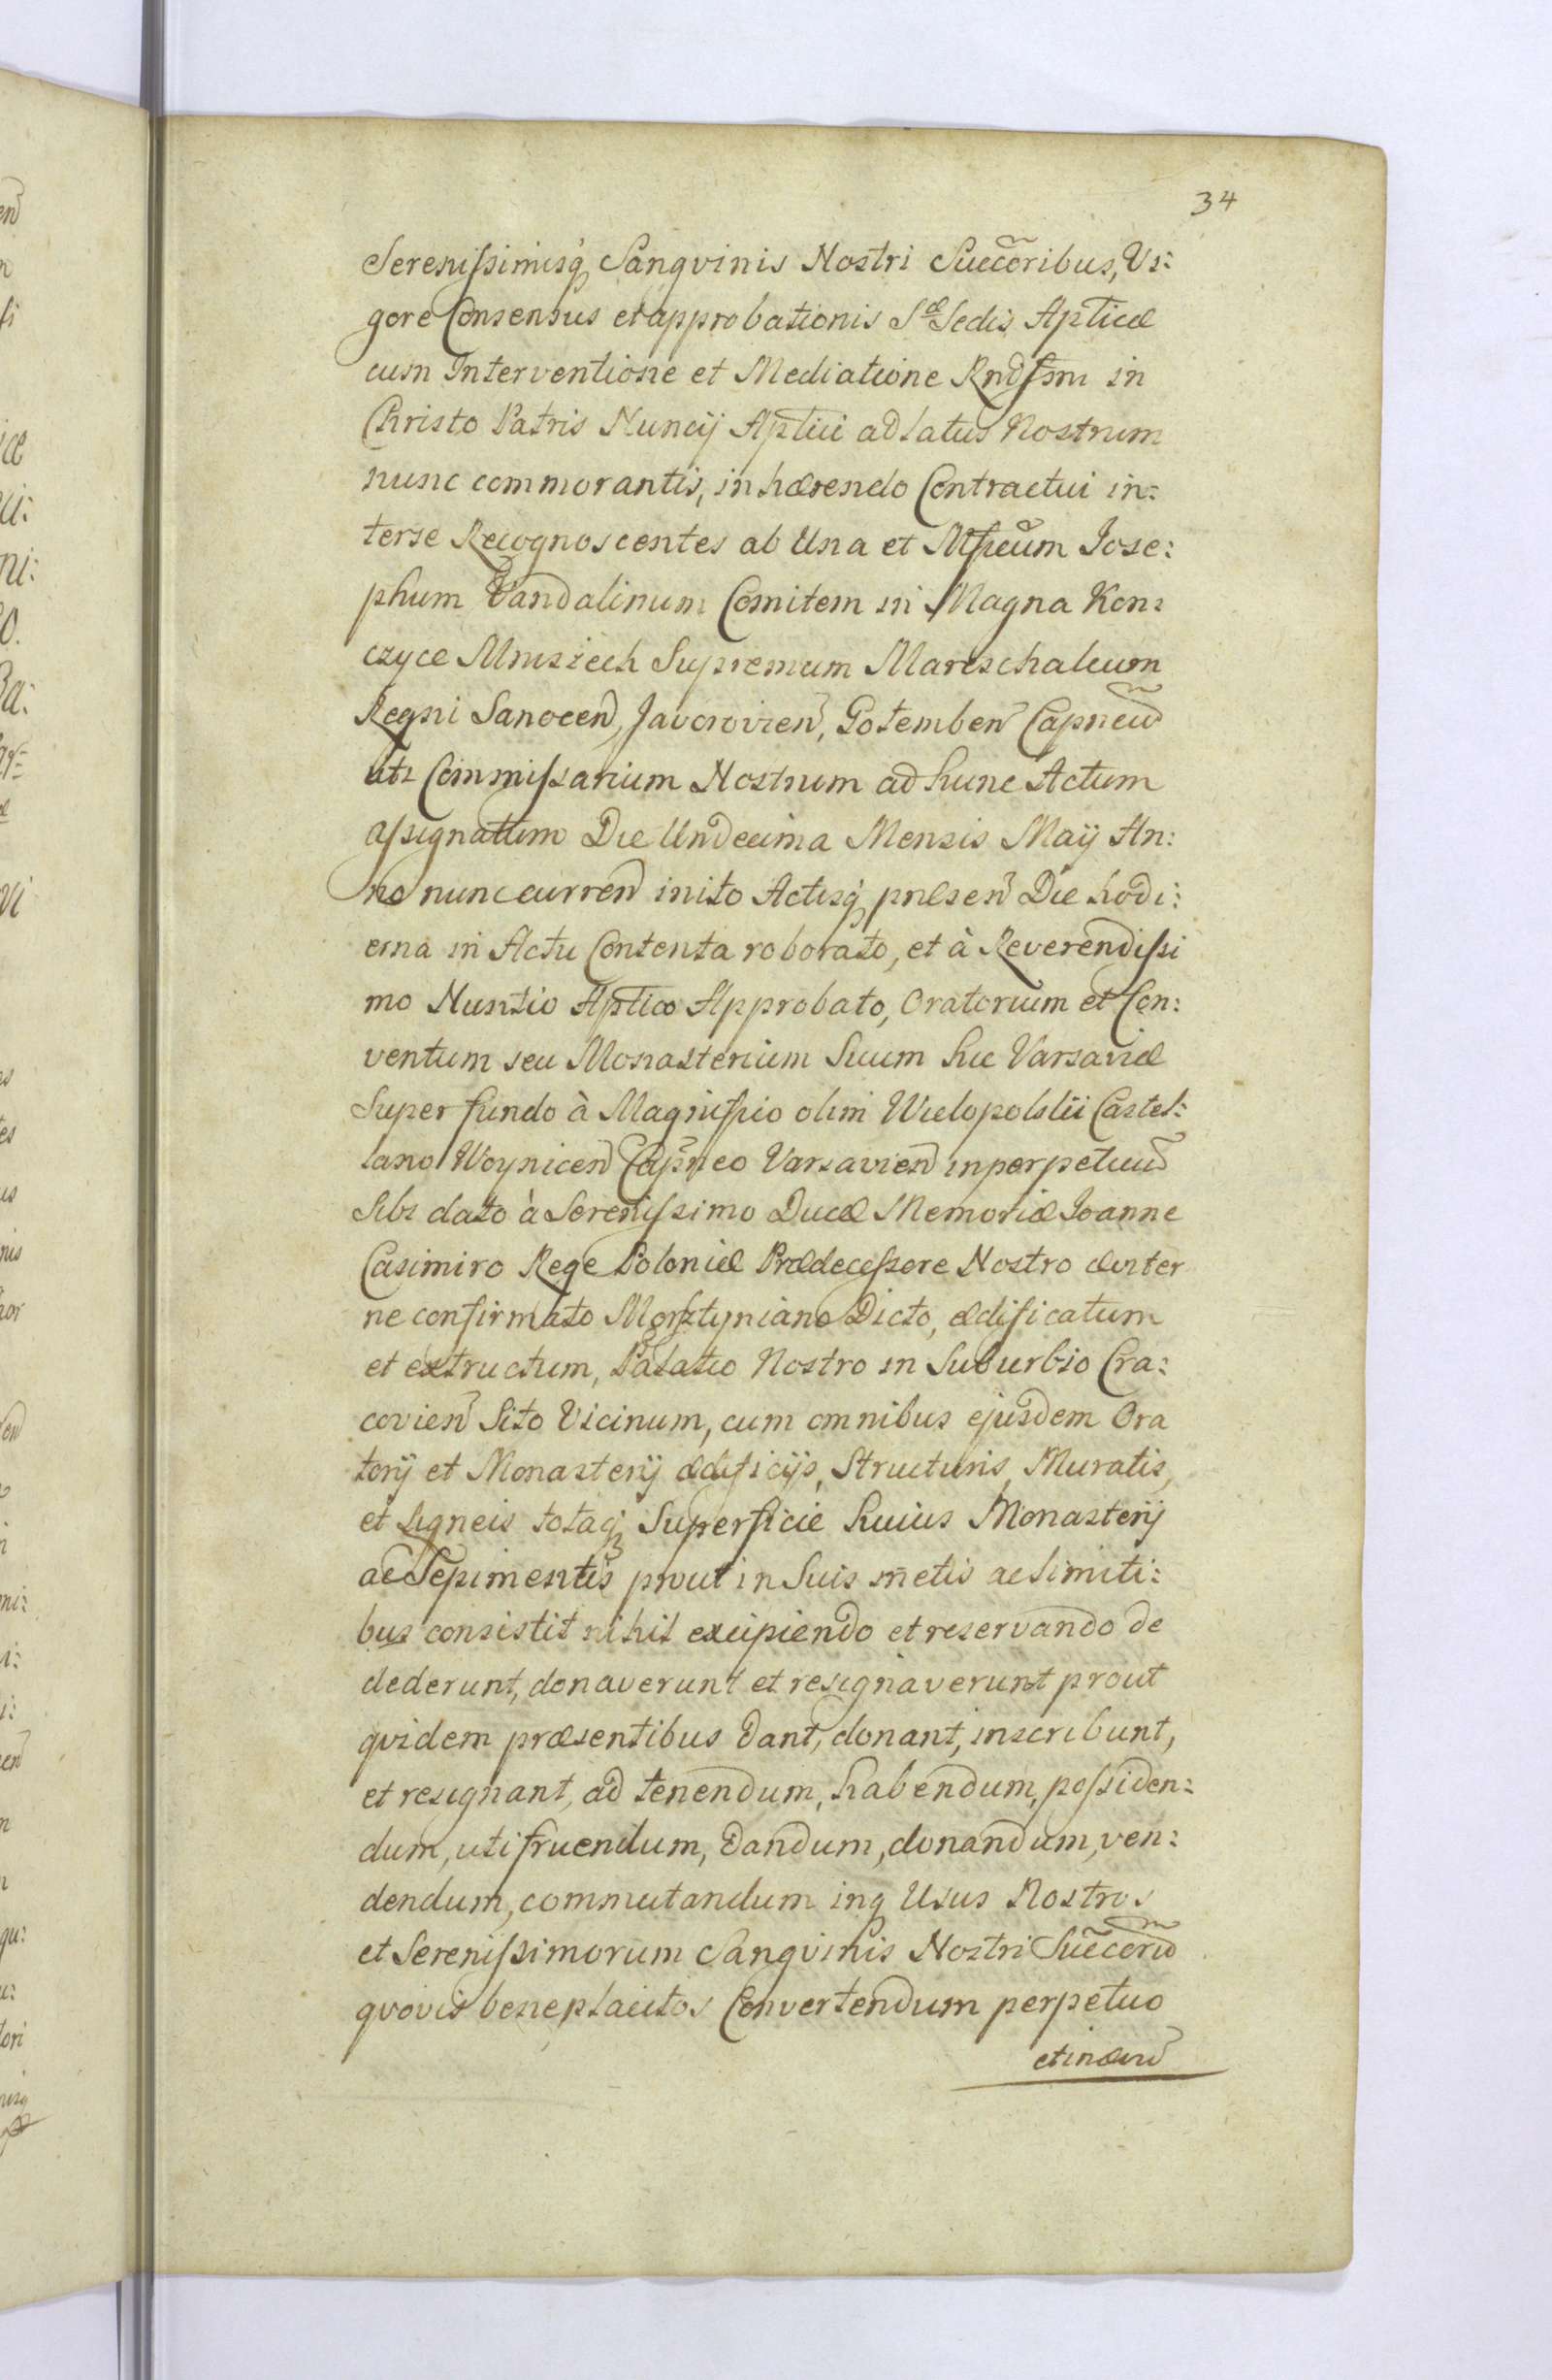 34
Serenissimisq́ Sangvinis Nostri Succ̃oribus, Vi:
gore Consensus et approbationis Sæ Sedis Apticæ
cum Interventione et Mediatione Rndssmi in
Christo Patris Nuncij Aptici ad latus Nostrum
nunc commorantis, inhærendo Contractui in:
terse Recognoscentes ab Una et Mficum Jose:
phum Vandalinum Comitem in Magna Kon:
czyce Mniszech Supremum Mareschalcum
Regni Sanocen̄, Javorovien̄, Gotemben̄ Capneum̄
uti Commissarium Nostrum ad hunc Actum
assignatum Die Undecima Mensis Maÿ An:
no nunc curren̄ inito Actisq́ pnesen̄ Die hodi:
erna in Actu Contenta roborato, et à Reverendissi
mo Nuntio Aptico Approbato, Oratorium et Con:
ventum seu Monasterium Suum hic Varsaviæ
Super fundo à Magnifico olim Wielopolskii Castel:
lano Woynicen̄ Capneo Varsavien̄ in perpetuum̄
Sibi dato à Serenissimo Ducæ Memoriæ Joanne
Casimiro Rege Poloniæ Prædecessore Nostro æviter
ne confirmato Morsztyniano Dicto, ædificatum
et extructum, Palatio Nostro in Suburbio Cra:
covien̄ Sito Vicinum, cum omnibus ejusdem Ora
torij et Monasterij ædificijs, Structuris, Muratis,
et ligneis totaq́ Superficie huius Monasterij
ac Sepimentis prout in Suis metis ac limiti:
bus consistit nihil excipiendo et reservando de
dederunt, donaverunt et resignaverunt prout
qvidem præsentibus dant, donant, inscribunt,
et resignant, ad tenendum, habendum, possiden:
dum, utifruendum, dandum, donandum, ven:
dendum, commutandum inq Usus Nostros
et Serenissimorum Sangvinis Nostri Succ̃orum̄
qvovis beneplacitos Convertendum perpetuo
et in ævum̄